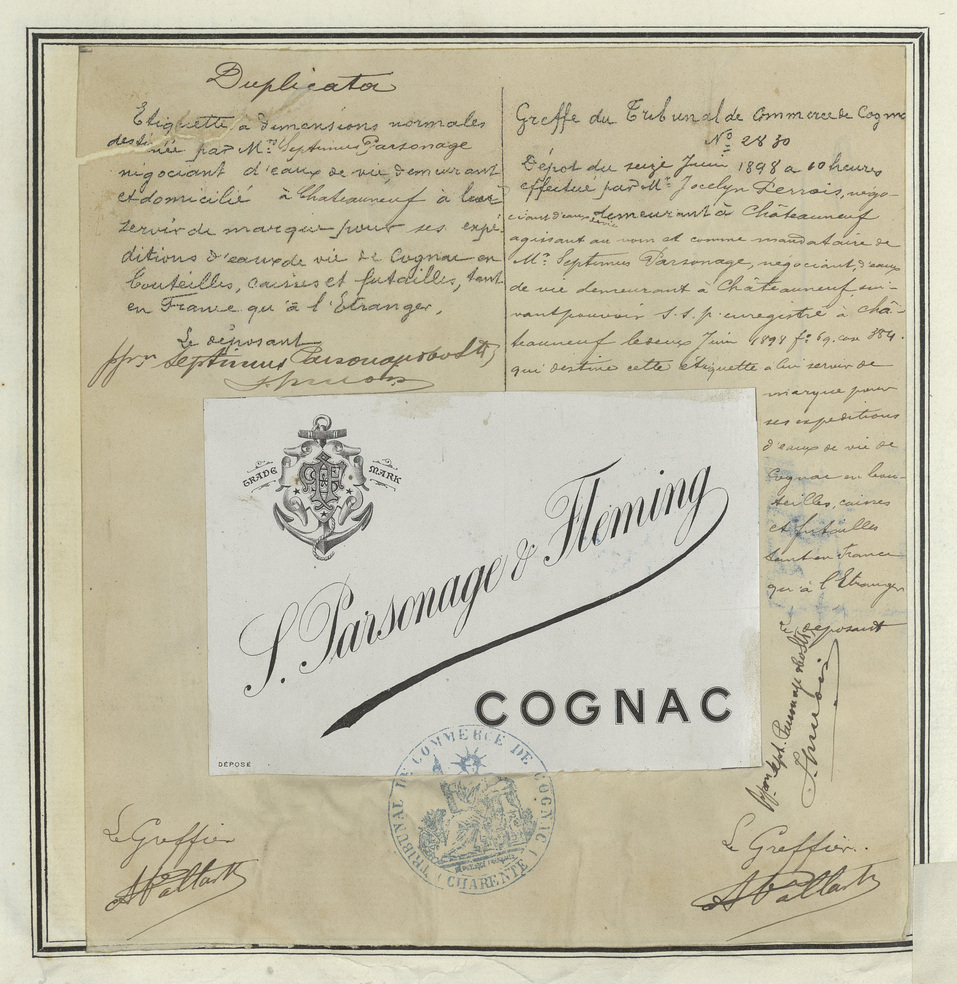 Duplicata
Etiquette à dimensions normales
destinée par Mr. Septimus Parsonage
négociant d'eaux de vie, demeurant
et domicilié à Chateauneuf à leur
servir de marque pour ses expé-
ditions d'eaux de vie de Cognac en
bouteilles, caisses et futailles, tant
en France qu'à l'Etranger.
Le déposant
ppon Septimus Parsonage
Greffe du Tribunal de Commerce de Cognac
No 2830
Dépôt du seize Juin 1898 à 10 heures
effectué par Mr. Jocelyn Perrois, négo-
ciant d'eaux de vie demeurant à Châteauneuf
agissant au nom et comme mandataire de
Mr. Septimus Parsonage, négociant d'eaux
de vie demeurant à Châteauneuf sui-
vant pouvoir s.s.p. enregistré à Châ-
teauneuf le deux Juin 1898 fo 69. case 384.
qui destine cette étiquette à lui servir de
marque pour
ses expeditions
d'eaux de vie de
Cognac en bou-
teilles, caisses
et futailles
tant en France
qu'à l'Etranger
Le déposant
ppon Sept. Parsonage
TRADE MARK
S. Parsonage & Fleming
COGNAC
DÉPOSÉ
TRIBUNAL DE COMMERCE DE COGNAC
(CHARENTE)
Le Greffier
Le Greffier